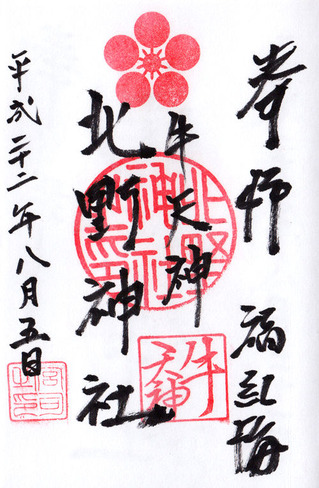 奉拝
福紅梅
牛天神
北野神社
平成二十二年八月五日
北野神社之印
牛天神
宮司之印